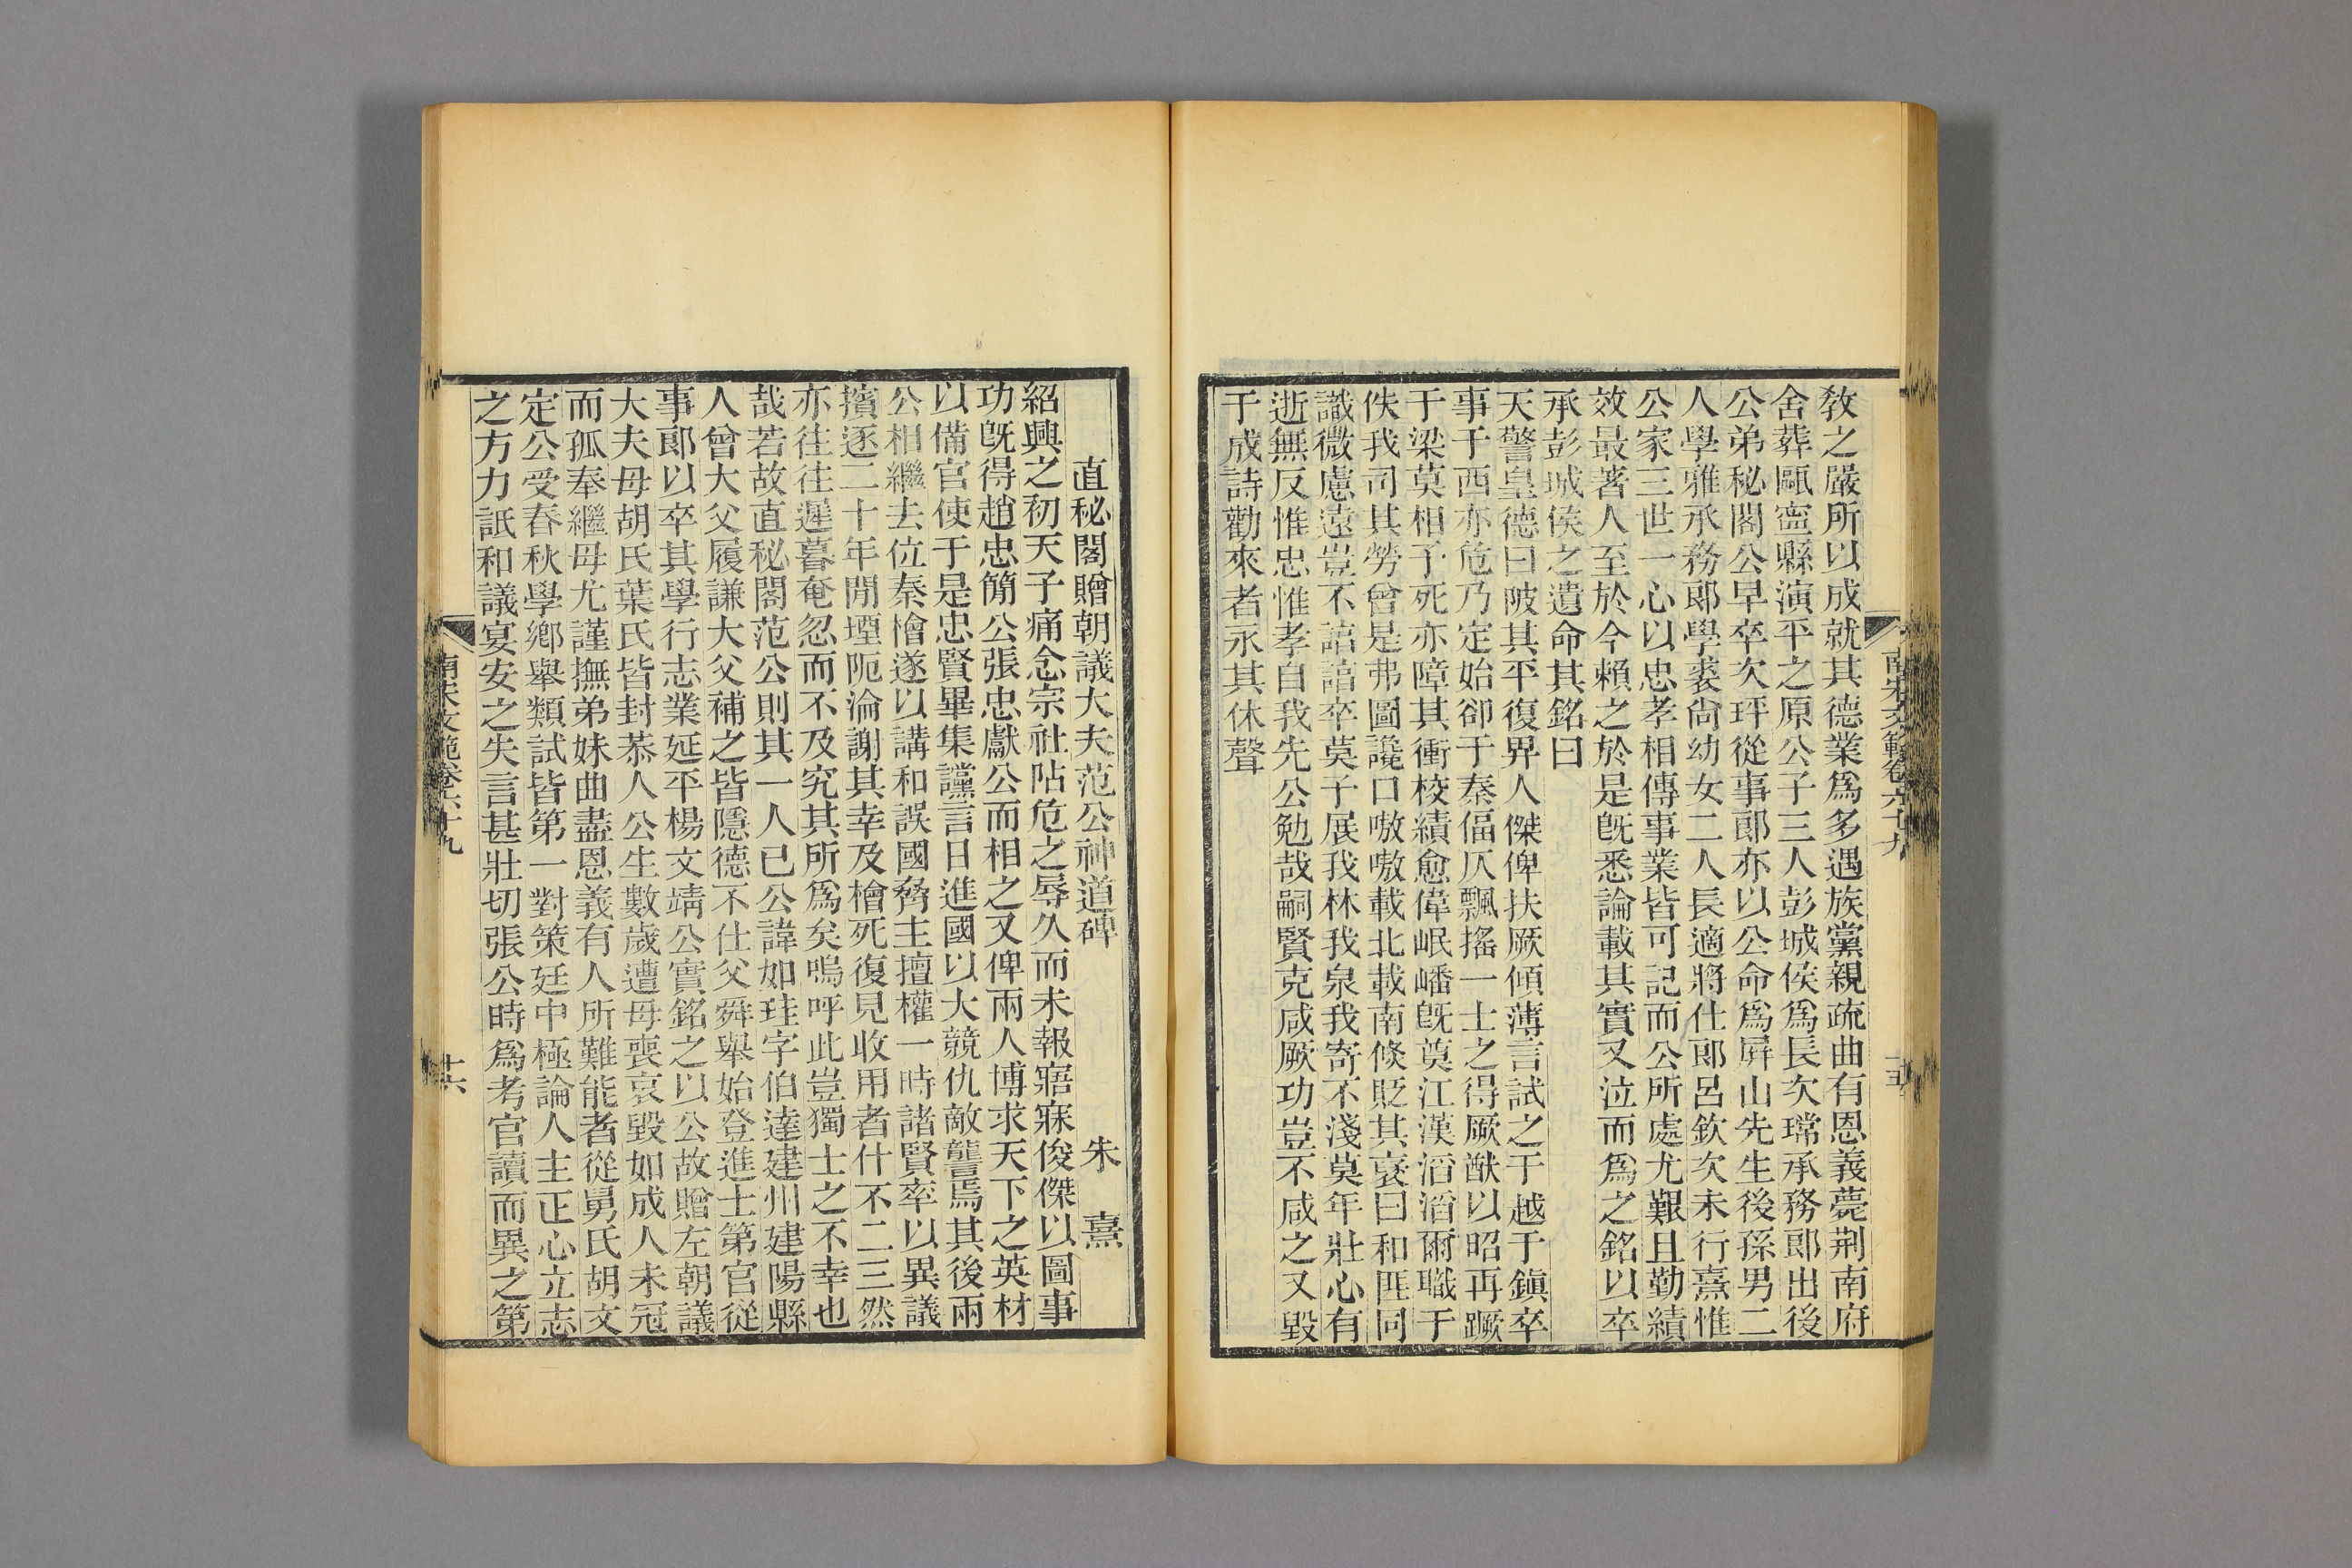 教之嚴所以成就其德業爲多遇族黨親疏曲有恩義薨荆南府
舍葬甌寧縣演平之原公子三人彭城侯爲長次瑺承務郎出後
公弟秘閣公早卒次玶從事郎亦以公命爲屏山先生後孫男二
人學雅承務郎學裘尙幼女二人長適將仕郎呂欽次未行熹惟
公家三世一心以忠孝相傳事業皆可記而公所處尤艱且勤績
效最著人至於今賴之於是旣悉論載其實又泣而爲之銘以卒
承彭城侯之遺命其銘曰
天警皇德曰陂其平復畀人傑俾扶厥傾薄言試之于越于鎭卒
事于西亦危乃定始卻于秦偪仄飄搖一士之得厥猷以昭再蹶
于梁莫相予死亦障其衝校績愈偉岷嶓旣奠江漢滔滔爾職于
佚我司其勞曾是弗圖讒口嗷嗷載北載南倏貶其褒曰和匪同
識微慮遠豈不諳諳卒莫予展我林我泉我寄不淺莫年壯心有
逝無反惟忠惟孝自我先公勉哉嗣賢克咸厥功豈不咸之又毀
于成詩勸來者永其休聲
南宋文範卷六十九
十五
直秘閣贈朝議大夫范公神道碑 朱熹
紹興之初天子痛念宗社阽危之辱久而未報寤寐俊傑以圖事
功旣得趙忠簡公張忠獻公而相之又俾兩人博求天下之英材
以備官使于是忠賢畢集讜言日進國以大競仇敵讋焉其後兩
公相繼去位秦檜遂以講和誤國脅主擅權一時諸賢率以異議
擯逐二十年閒堙阨淪謝其幸及檜死復見收用者什不二三然
亦往往遲暮奄忽而不及究其所爲矣嗚呼此豈獨士之不幸也
哉若故直秘閣范公則其一人已公諱如珪字伯達建州建陽縣
人曾大父履謙大父補之皆隱德不仕父舜舉始登進士第官從
事郎以卒其學行志業延平楊文靖公實銘之以公故贈左朝議
大夫母胡氏葉氏皆封恭人公生數歲遭母喪哀毀如成人未冠
而孤奉繼母尤謹撫弟妹曲盡恩義有人所難能者從舅氏胡文
定公受春秋學鄉舉類試皆第一對策廷中極論人主正心立志
之方力詆和議宴安之失言甚壯切張公時爲考官讀而異之第
南宋文範卷六十九
十六